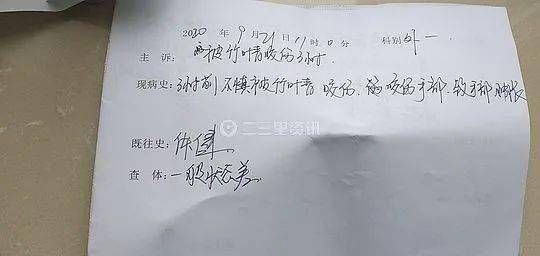 2020 年 9 月 21 日 11 时 0 分 科别 外一
主 诉: 被竹叶青咬伤3小时
现病史: 3小时前 不慎被竹叶青咬伤、咬伤手部、致手部肿胀
二三里资讯
既往史: 体健
查 体: 一般状态